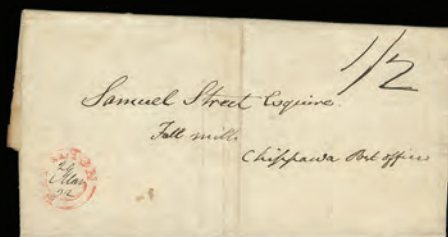 1/2
Samuel Street Esquire
Fall mills
Chippawa Post office
Mar